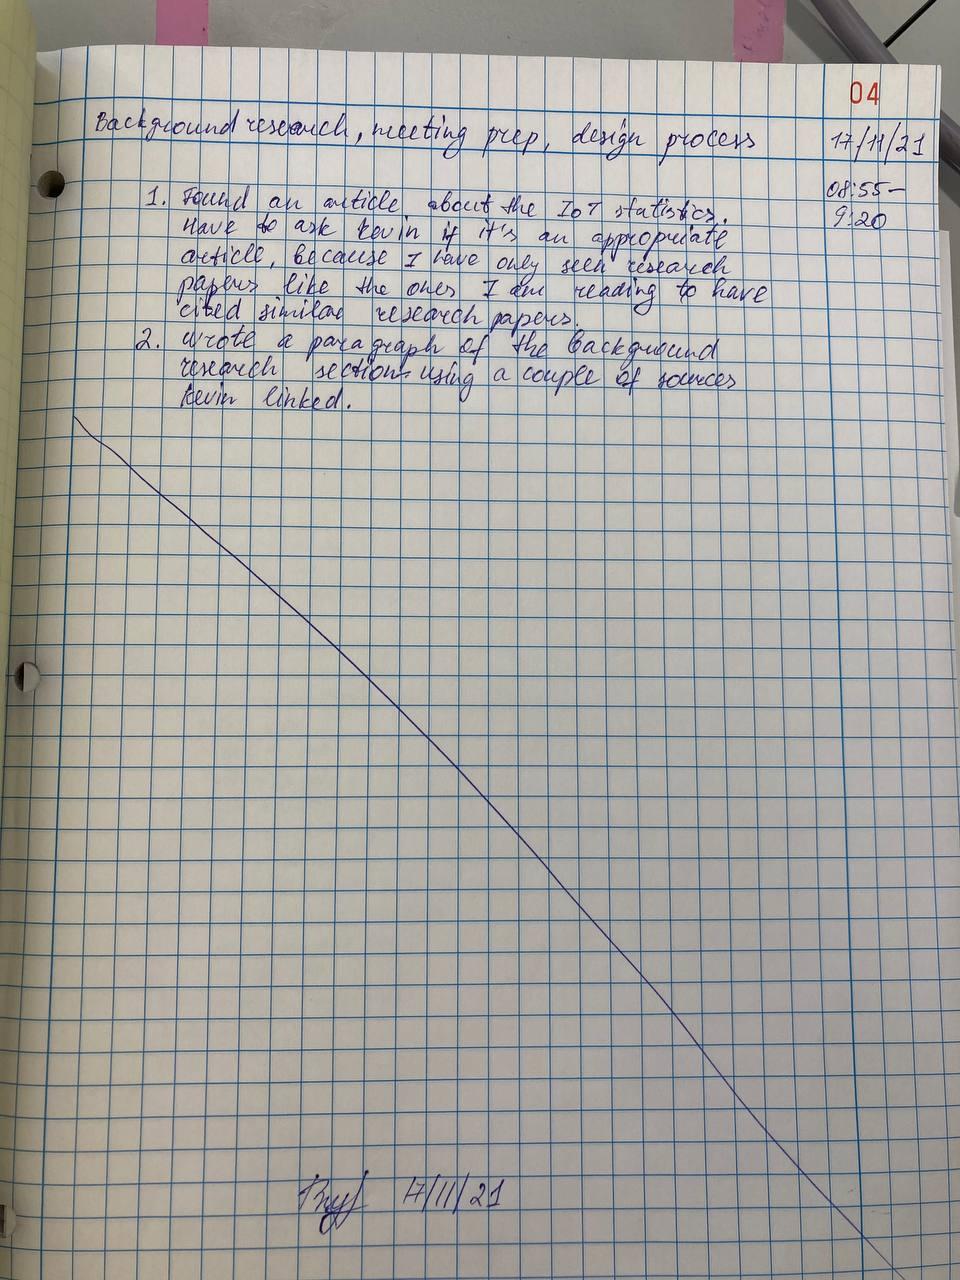 04
Background research, meeting prep, design process 17/11/21
08:55-
9:20
1. Found an article about the IoT statistics.
Have to ask Kevin if it's an appropriate
article, because I have only seen research
papers like the ones I am reading to have
cited similar research papers.
2. Wrote a paragraph of the Background
research section using a couple of sources
Kevin linked.
17/11/21